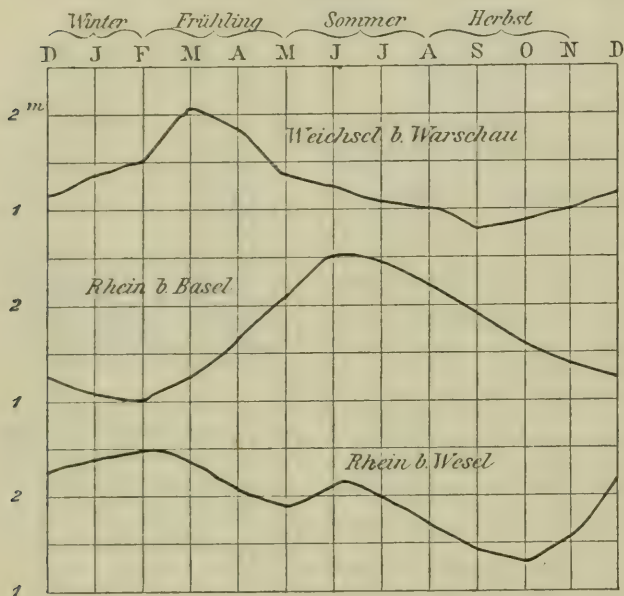 Winter Frühling Sommer Herbst
D J F M A M J J A S O N D
2 m
Weichsel b. Warschau
1
Rhein b. Basel
2
1
Rhein b. Wesel
2
1